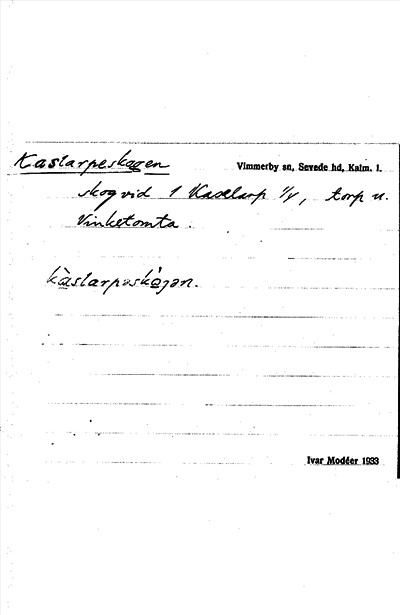 Kaslarpeskogen
Vimmerby sn, Sevede hd, Kalm. l.
skog vid 1 Kaslarp 1/4, torp u.
Vinketomta.
kàslarpəskògən.
Ivar Modéer 1933